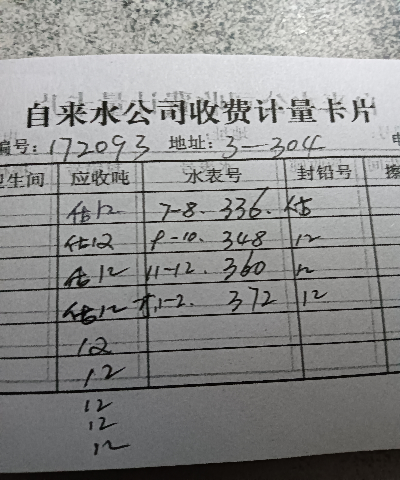 自来水公司收费计量卡片
编号：172093 地址：3-304
卫生间 应收吨 水表号 封铅号
估12 7-8. 336. 估
估12 9-10. 348 12
估12 11-12. 360 12
估12 1-2. 372 12
12
12
12
12
12